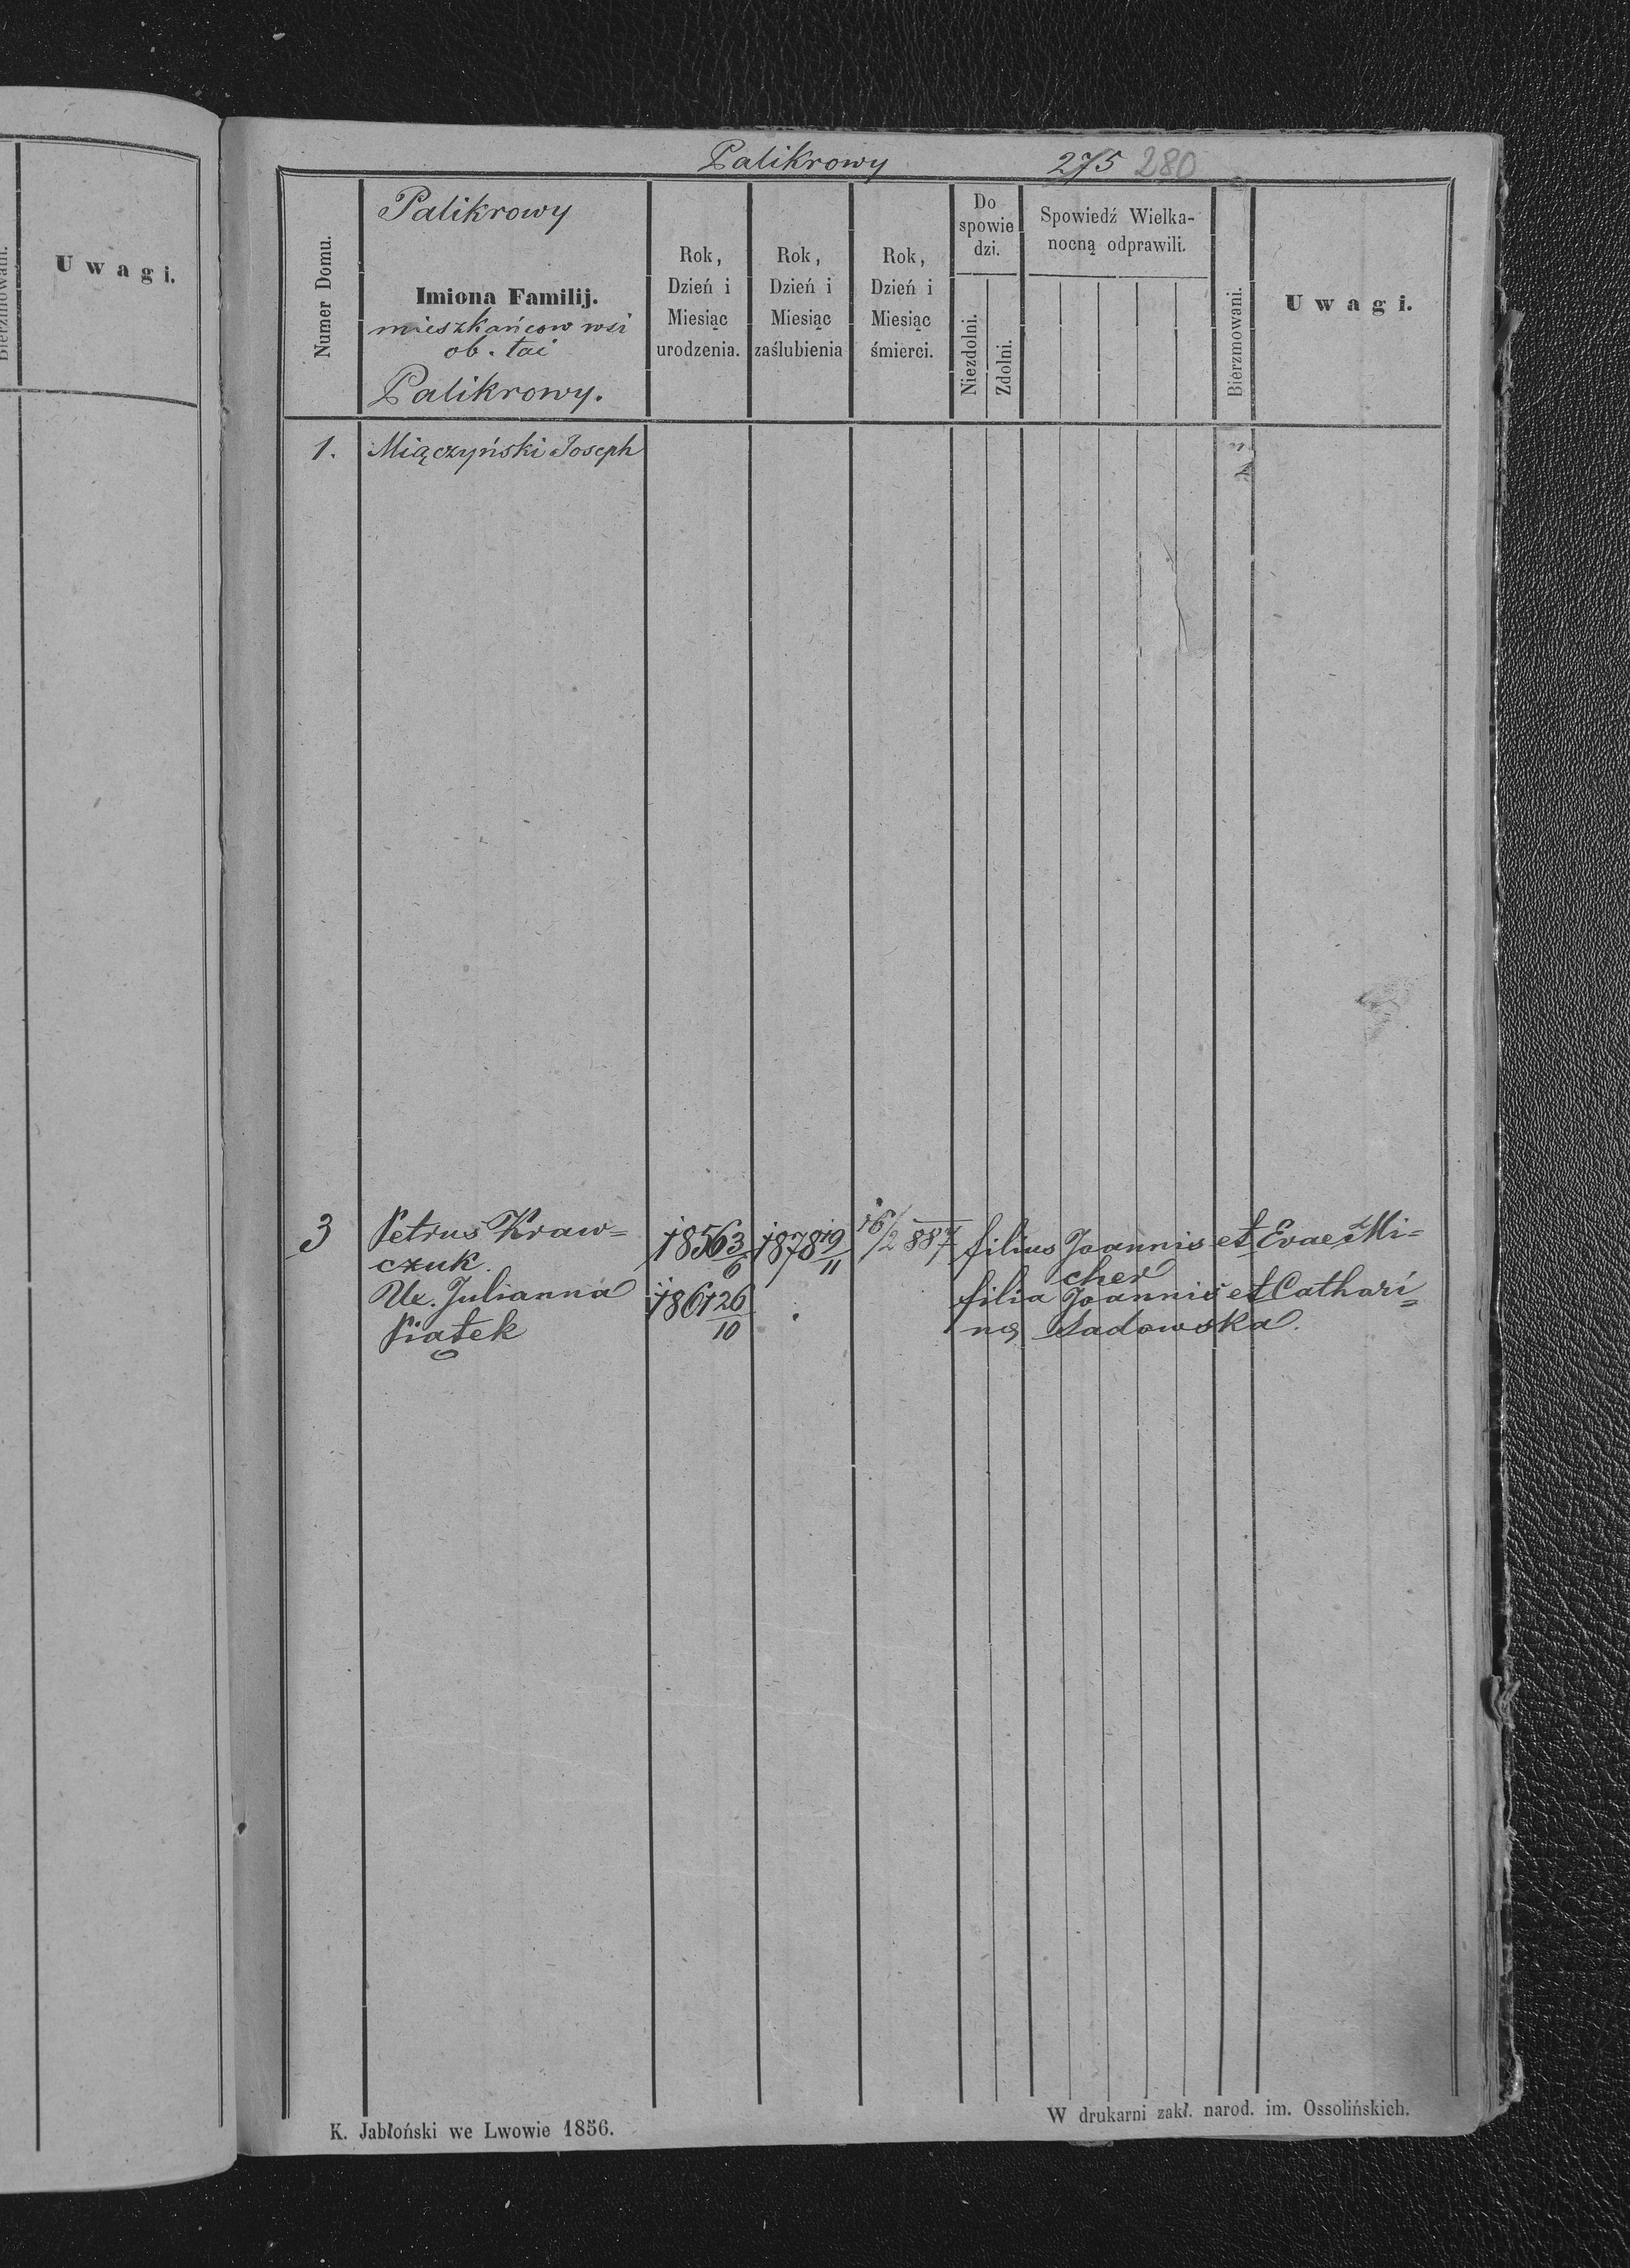 Bierzmowani.
U w a g i.
Palikrowy 275 280
Numer Domu.
Palikrowy
Imiona Familij.
mieszkańcow wsi
ob. łac
Palikrowy.
Rok,
Dzień i
Miesiąc
urodzenia.
Rok,
Dzień i
Miesiąc
zaślubienia
Rok,
Dzień i
Miesiąc
śmierci.
Do
spowie
dzi.
Niezdolni.
Zdolni.
Spowiedź Wielka-
nocną odprawili.
Bierzmowani.
U w a g i.
1. Miączyński Joseph
3 Petrus Kraw= 1856 3/6 1878 19/11 16/2 887 filius Joannis et Evae Mi=
czuk. cher
Ux. Julianna 1861 26/10 filia Joannis et Cathari=
Piątek nę Sadowska.
K. Jabłoński we Lwowie 1856.
W drukarni zakł. narod. im. Ossolińskich.